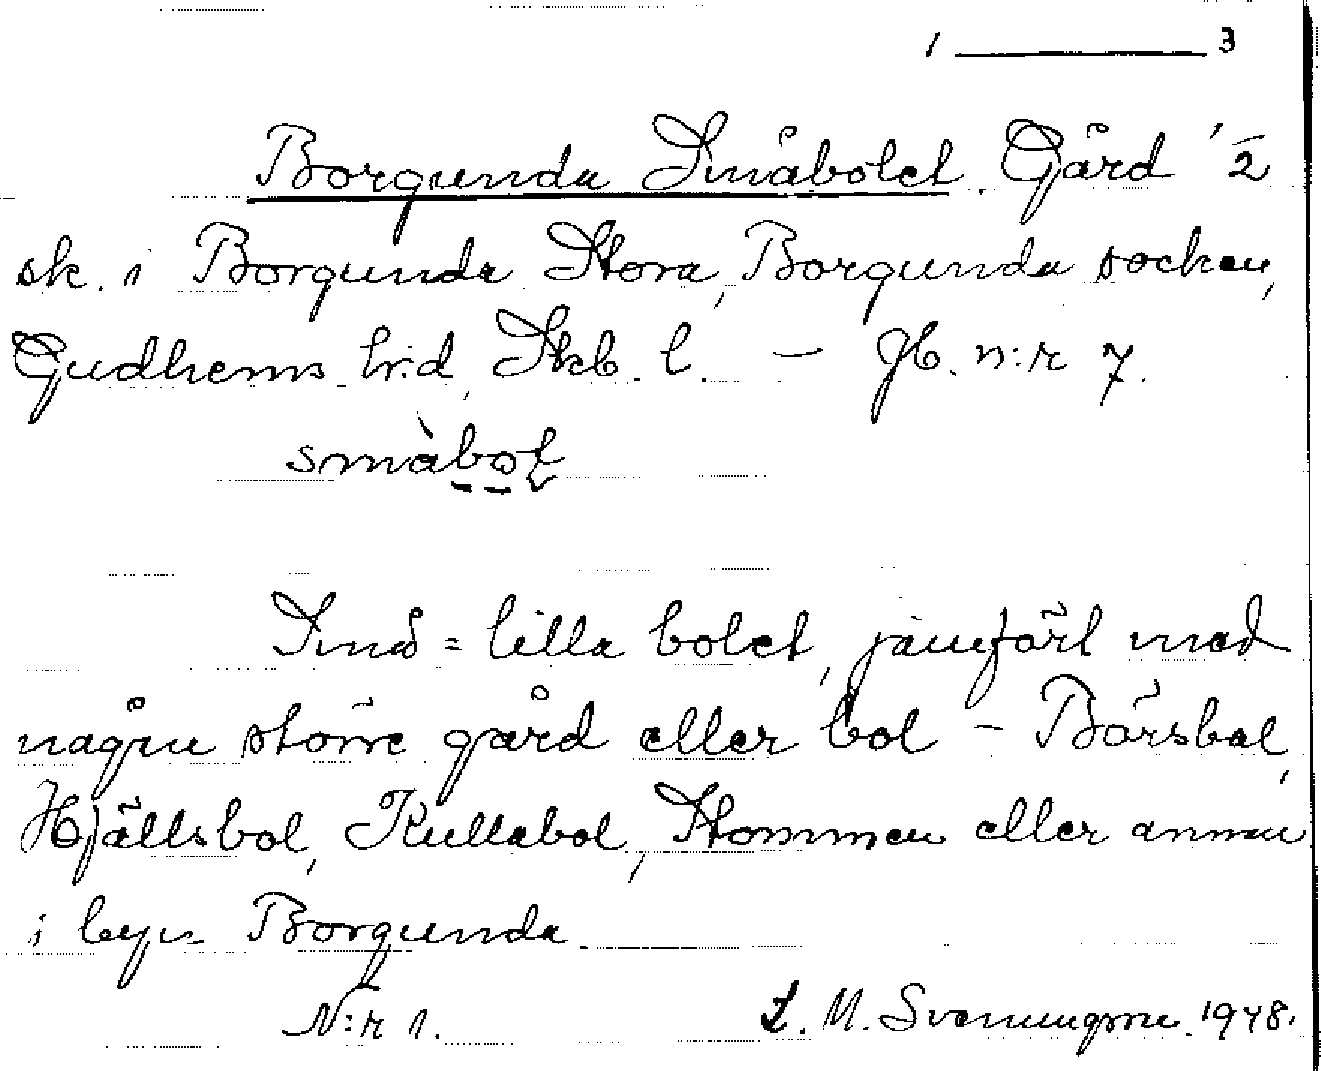 1 ——— 3
Borgunda Småbolet. Gård 1/2
sk. i Borgunda Stora, Borgunda socken,
Gudhems hrd, Skb. l. – Jb. n:r 7.
småbol
Små = lilla bolet, jämfört med
någru större gård eller bol – Börsbol,
Hjällsbol, Kullabol, Stommen eller annan
i byn Borgunda
N:r 1. L. M. Svenungsson. 1948.